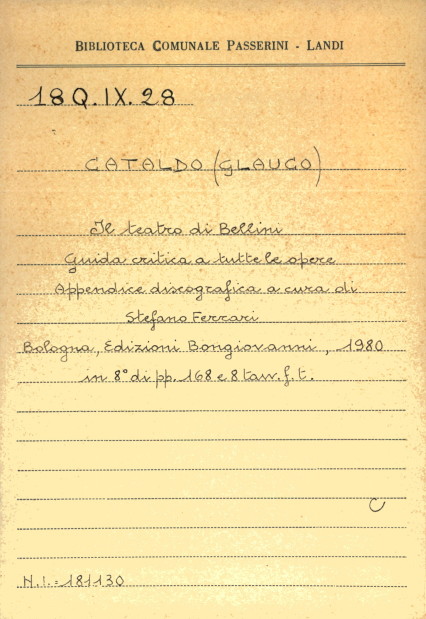 BIBLIOTECA COMUNALE PASSERINI - LANDI
18Q.IX.28
CATALDO (GLAUCO)
Il teatro di Bellini
Guida critica a tutte le opere
Appendice discografica a cura di
Stefano Ferrari
Bologna, Edizioni Bongiovanni, 1980
in 8° di pp. 168 e 8 tav. f. t.
C
N.I.= 181130